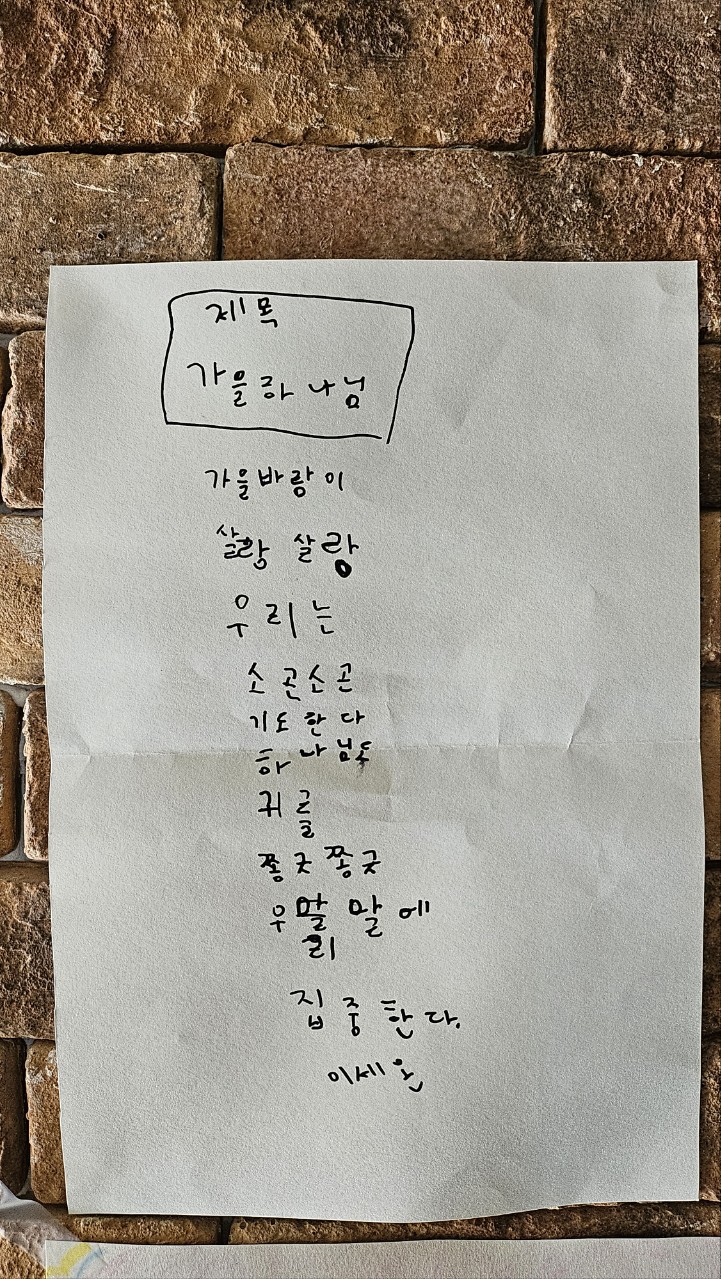 제목
가을하나님
가을바람이
살랑 살랑
우리는
소곤소곤
기도한다
하나님도
귀를
쫑긋쫑긋
우리 말에
집중한다.
이세온